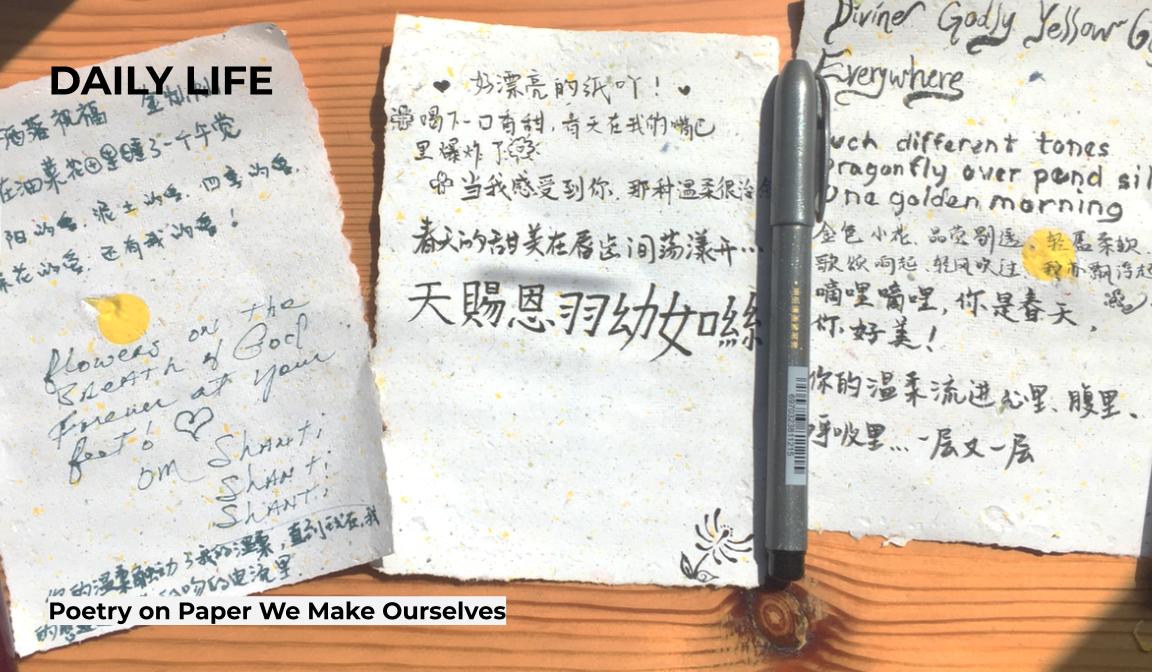 DAILY LIFE
洒落祝福
在油菜花田里睡了一个午觉
阳的香.泥土的香.四季的香.
菜花的香.还有我的香!
flowers on the
Breath of God
Forever at your
feet!
om Shanti
Shanti
Shanti
你的温柔触动了我的温柔,直到现在,我
的电流里
♥ 好漂亮的纸吖!♥
喝下一口有甜,春天在我的嘴巴
里爆炸了
当我感受到你,那种温柔很治愈
春天的甜美在唇齿间荡漾开…
天賜恩羽幼女
Divine Godly Yellow
Everywhere
such different tones
Dragonfly over pond
One golden morning
金色小花、品尝
歌颂响起、轻风吹过
嘀哩嘀哩,你是春天,
你好美!
你的温柔流进心里、腹里、
呼吸里…一层又一层
6970323811215
Poetry on Paper We Make Ourselves